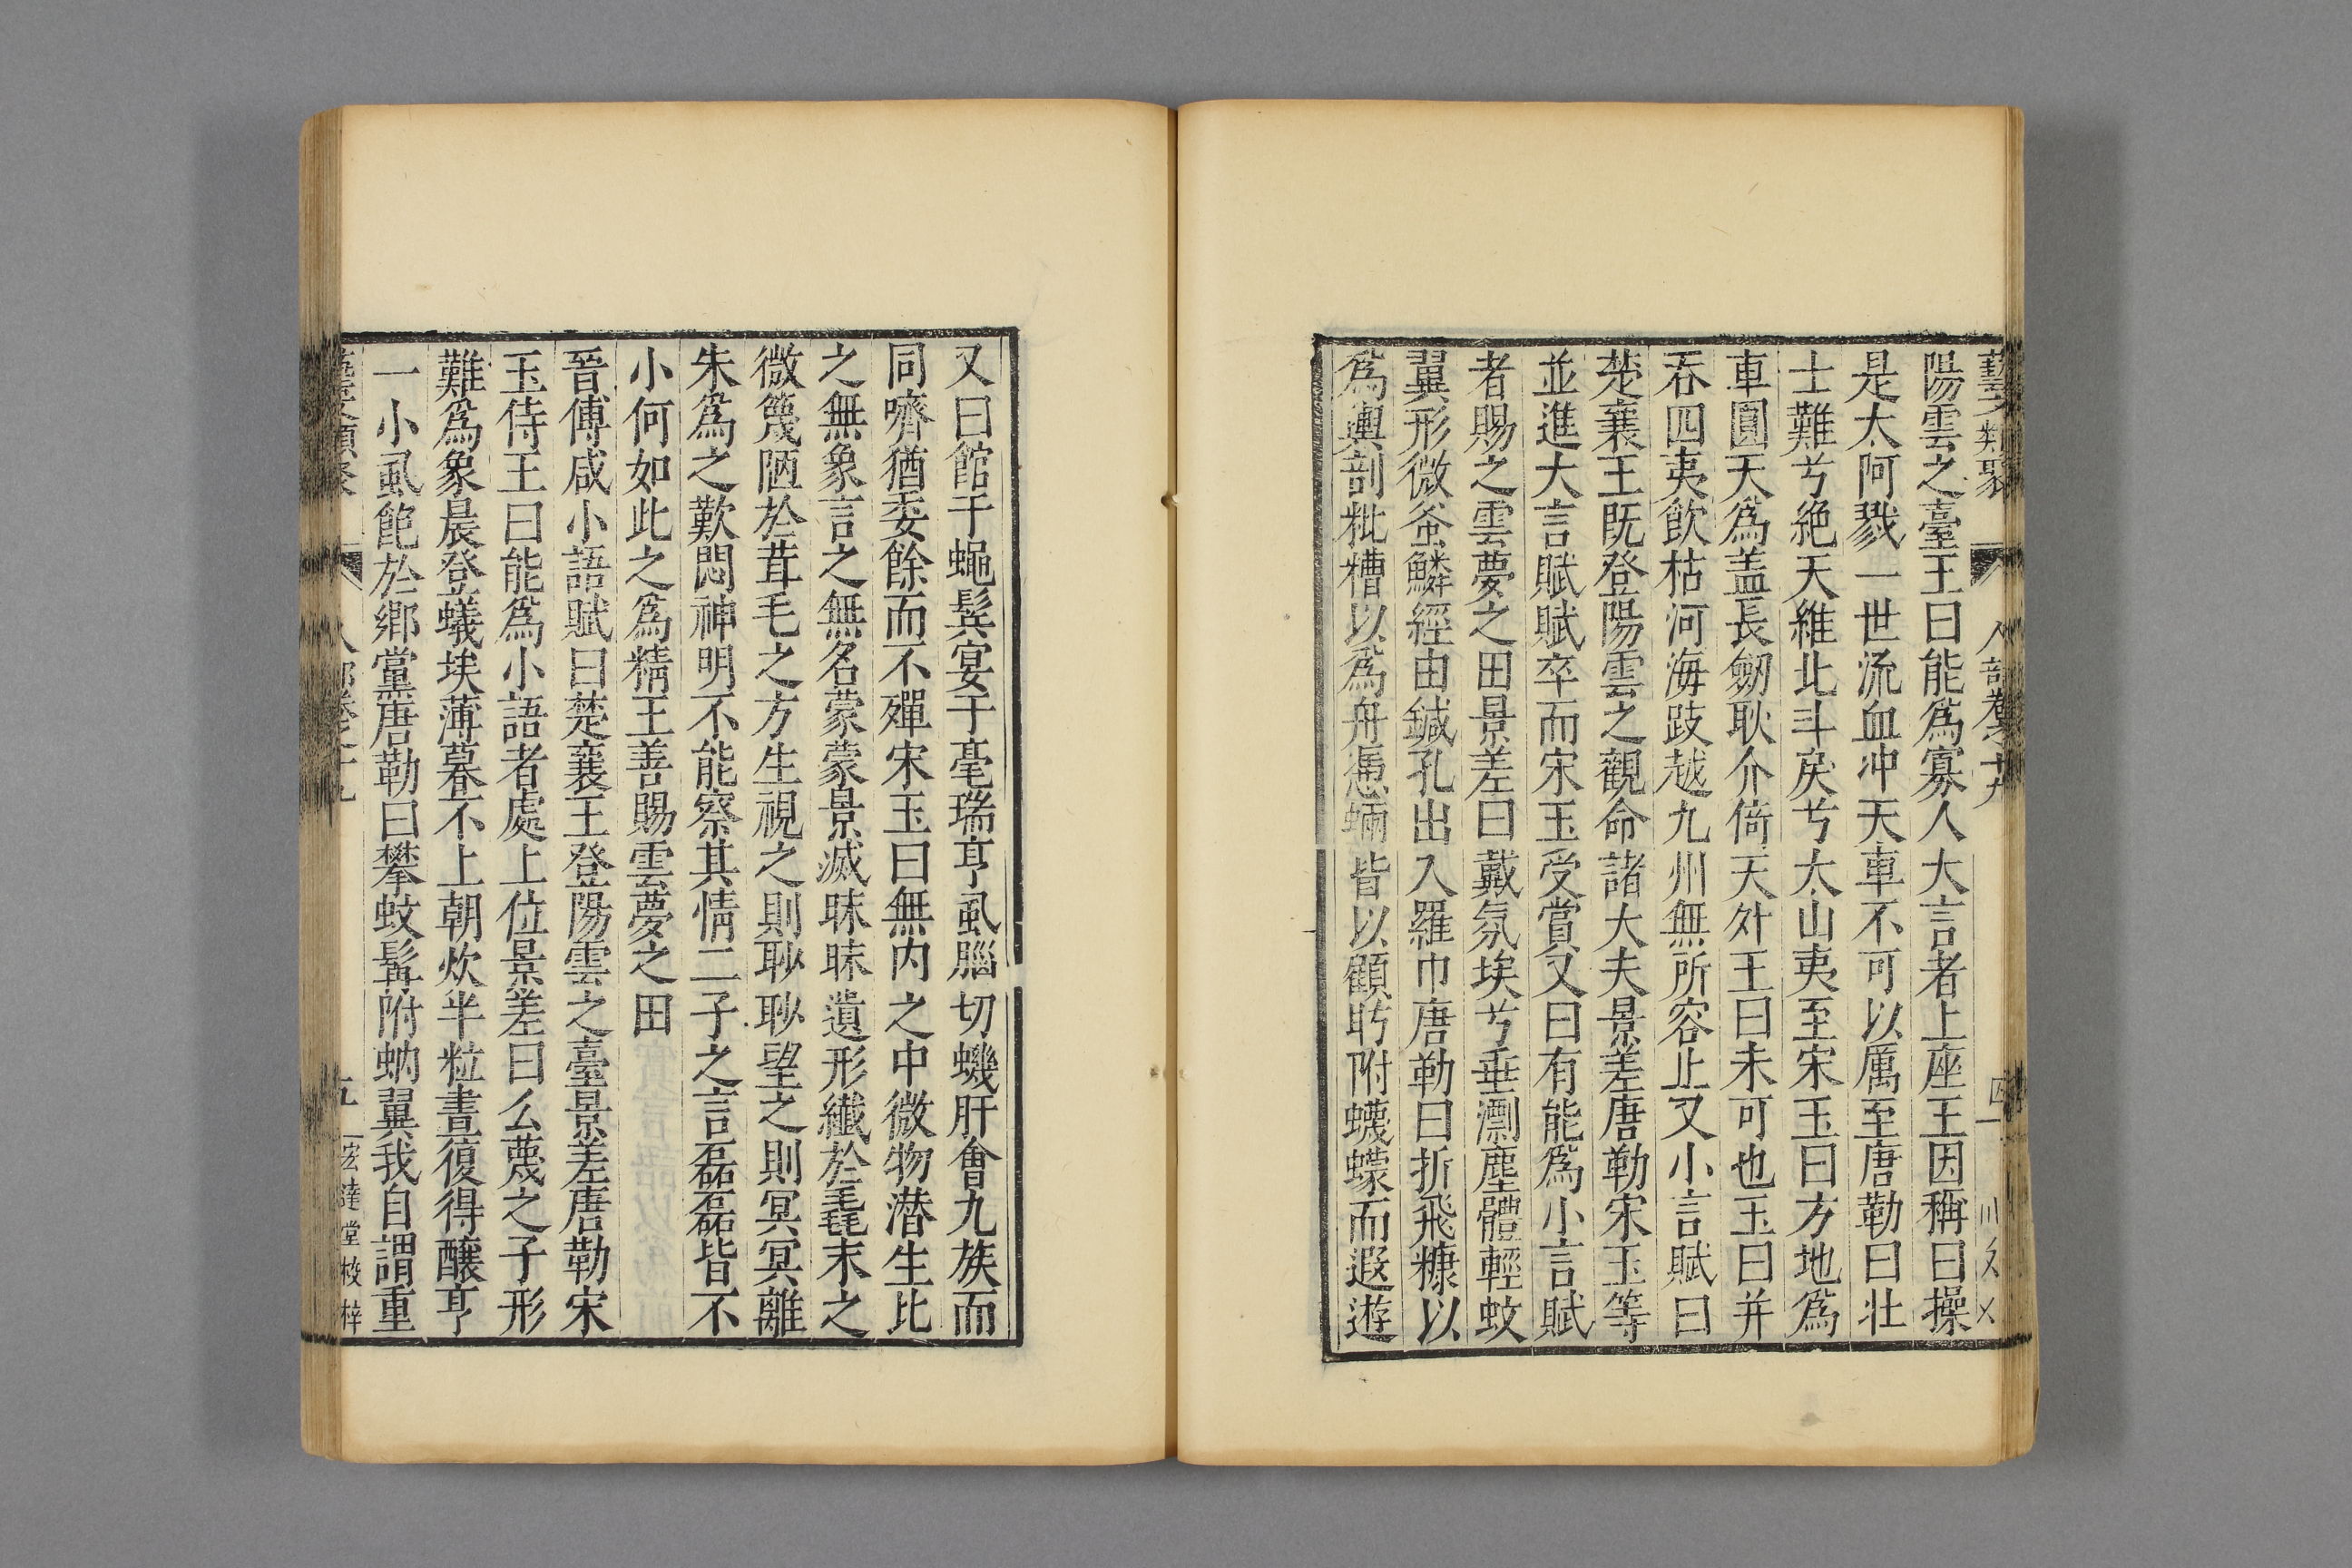 藝文類聚 人部卷之十九 四
陽雲之臺王曰能爲寡人大言者上座王因稱曰操
是太阿戮一世流血冲天車不可以厲至唐勒曰壯
士難兮絶天維北斗戾兮太山夷至宋玉曰方地爲
車圓天爲盖長劒耿介倚天外王曰未可也玉曰并
吞四夷飲枯河海跂越九州無所容止又小言賦曰
楚襄王旣登陽雲之觀命諸大夫景差唐勒宋玉等
並進大言賦賦卒而宋玉受賞又曰有能爲小言賦
者賜之雲夢之田景差曰戴氛埃兮垂漂塵體輕蚊
翼形微蚤鱗經由鍼孔出入羅巾唐勒曰折飛糠以
爲輿剖粃糟以爲舟憑蜹皆以顧眄附蠛蠓而遐遊
又曰館于蠅鬓宴于毫瑞亨虱腦切蟣肝會九族而
同嚌猶委餘而不殫宋玉曰無内之中微物潜生比
之無象言之無名蒙蒙景滅昧昧遺形纖於毳末之
微篾陋於茸毛之方生視之則眇眇望之則冥冥離
朱爲之歎悶神明不能察其情二子之言磊磊皆不
小何如此之爲精王善賜雲夢之田
晉傅咸小語賦曰楚襄王登陽雲之臺景差唐勒宋
玉侍王曰能爲小語者處上位景差曰么蔑之子形
難爲象晨登蟻埃薄暮不上朝炊半粒晝復得釀亨
一小虱飽於鄉黨唐勒曰攀蚊髯附蚋翼我自謂重
五 堂校梓